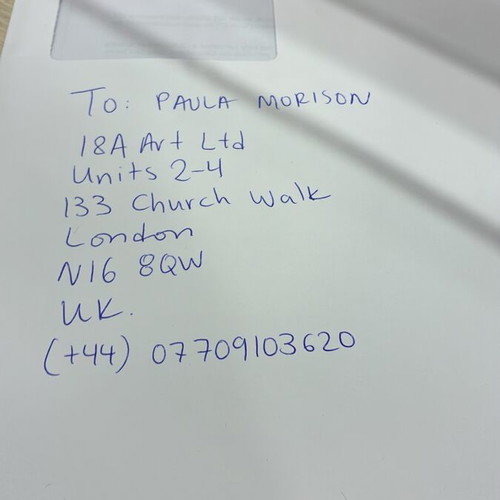 To: PAULA MORISON
18A Art Ltd
Units 2-4
133 Church Walk
London
N16 8QW
UK.
(+44) 07709103620